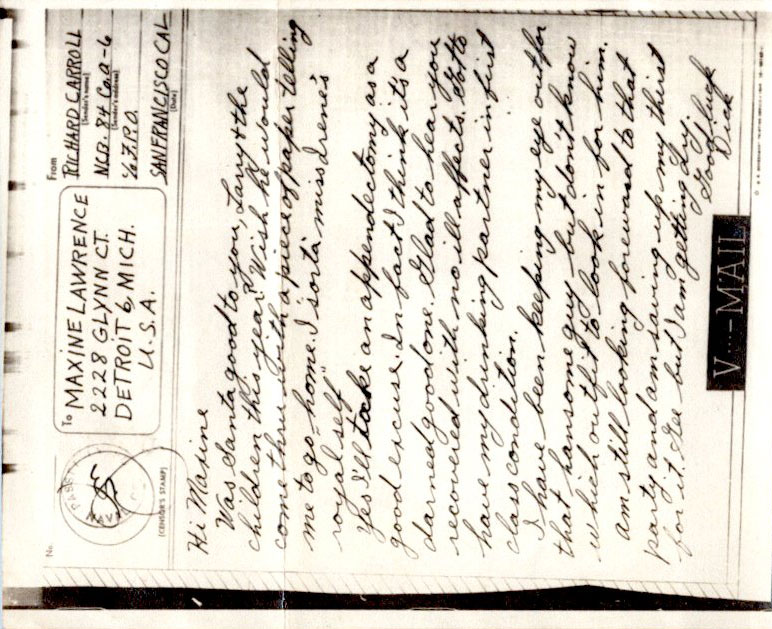 No.
(CENSOR'S STAMP)
To MAXINE LAWRENCE
2228 GLYNN CT.
DETROIT 6, MICH.
U.S.A.
From
RICHARD CARROLL
(Sender's name)
NCB. 84 Co. A-6
(Sender's address)
℅ F.P.O.
SAN FRANCISCO CAL
(Date)
Hi Maxine
Was Santa good to you, Larry & the
children this year. Wish he would
come thru with a piece of paper telling
me to go home. I sorta miss Irene's
royal self"
Yes I'll take an appendectomy as a
good excuse. In fact I think it's a
darned good one. Glad to hear you
recovered with no ill affects. Gotto
have my drinking partner in first
class condition.
I have been keeping my eye out for
that hansome guy but don't know
which outfit to look in for him.
am still looking foreward to that
party and am saving up my thirst
for it. Gee but I am getting dry.
Good luck
Dick
V···-MAIL